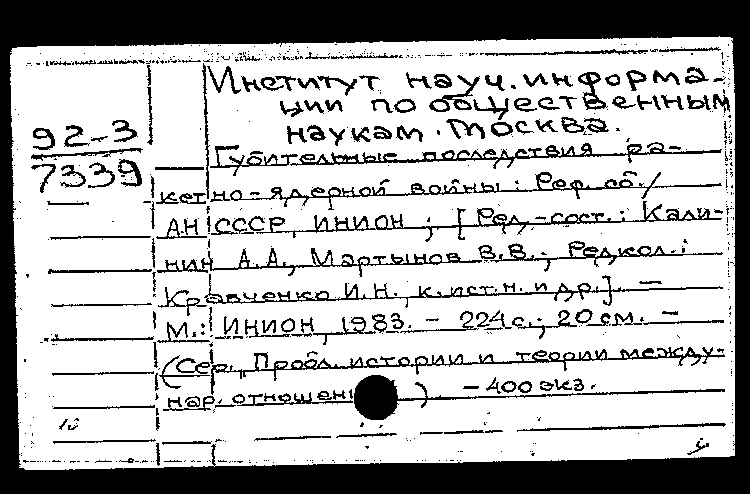 Институт науч. информа-
ции по общественным
наукам. Москва.
92-3
7339
Губительные последствия ра-
кетно-ядерной войны: Реф. сб./
АН СССР, ИНИОН; [Ред.-сост.: Кали-
нин А.А., Мартынов В.В.; Редкол.:
Кравченко И.Н., к.ист.н. и др.]. —
М.: ИНИОН, 1983. - 224 с.; 20 см. —
(Сер. Пробл. истории и теории между-
нар. отношен ) - 400 экз.